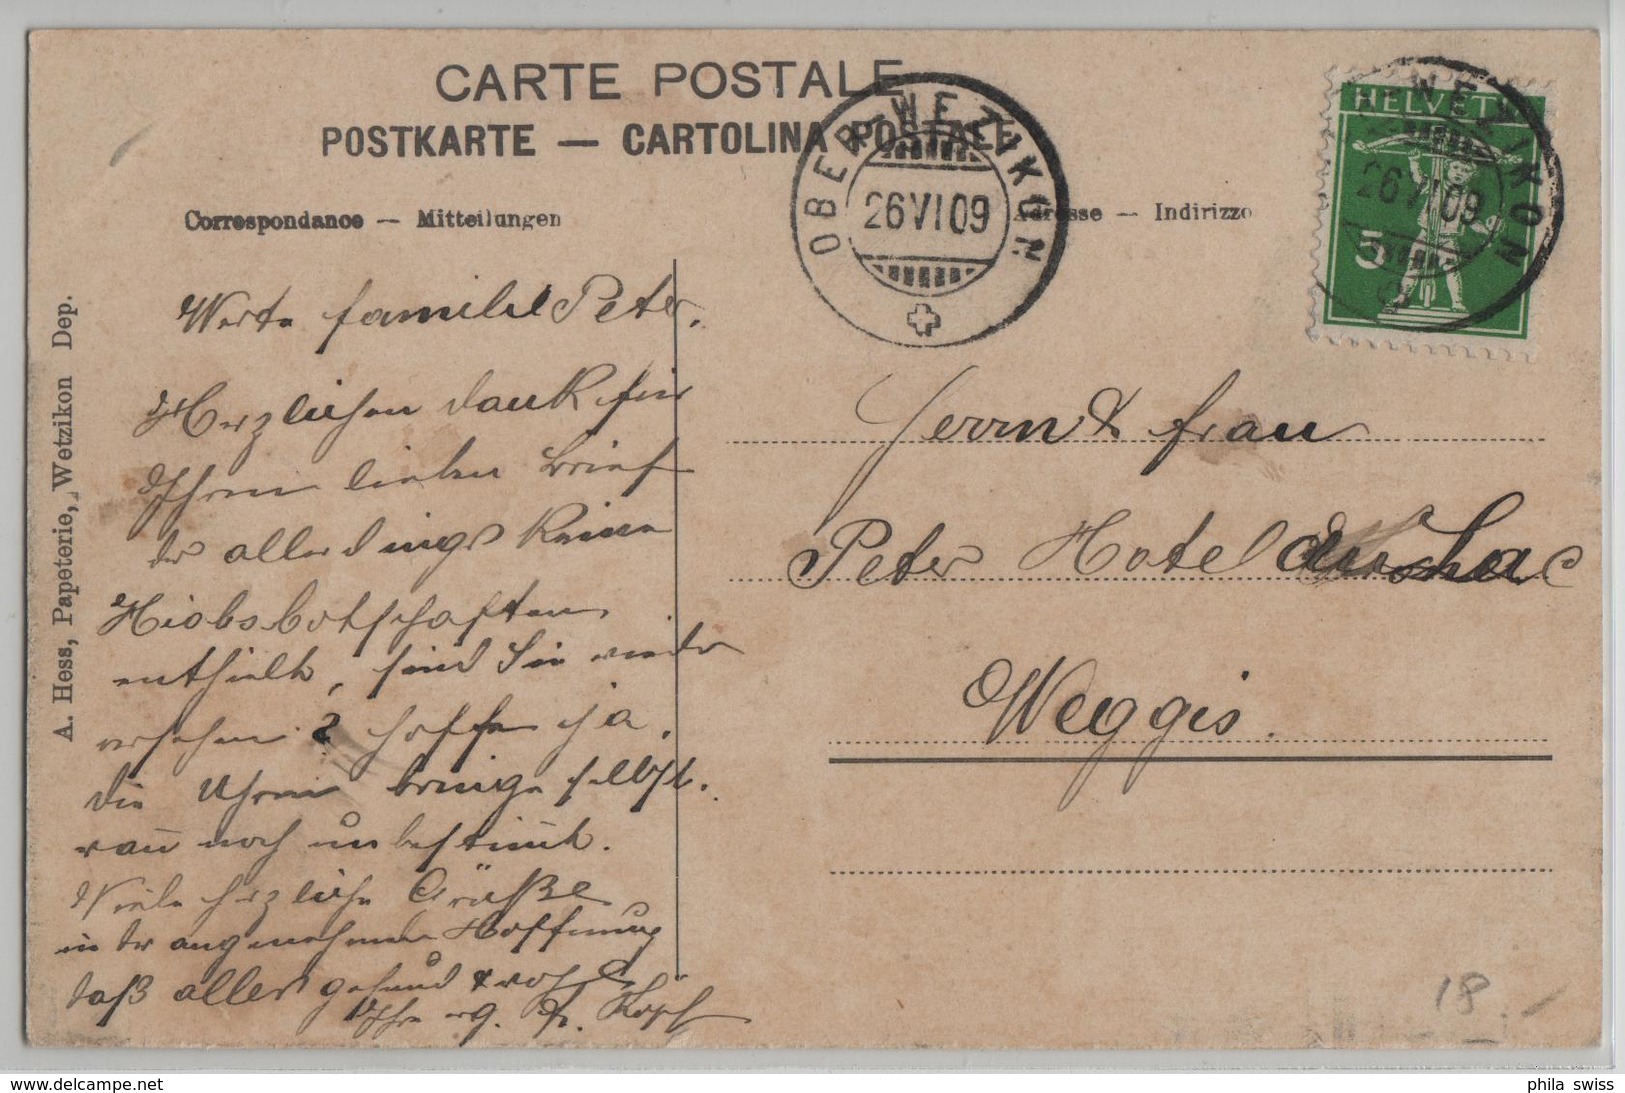 CARTE POSTALE
POSTKARTE — CARTOLINA POSTALE
Correspondance — Mitteilungen
Adresse — Indirizzo
OBER-WETZIKON
26 VI 09
HELVETIA
5
OBER-WETZIKON
26 VI 09
A. Hess, Papeterie, Wetzikon Dep.
Werte Familie Peter.
Herzlichen Dank für
Ihren lieben Brief
der allerdings keine
Hiobsbotschaften
enthielt, sind Sie wieder
versehen? hoffe ja.
die Uhren bringe selbst.
wañ noch unbestimt.
Viele herzliche Grüße
in der angenehmen Hoffnung
daß alles gesund & wohl
Ihr erg.
Herrn & Frau
Peter Hotel
Weggis.
18.-
phila swiss